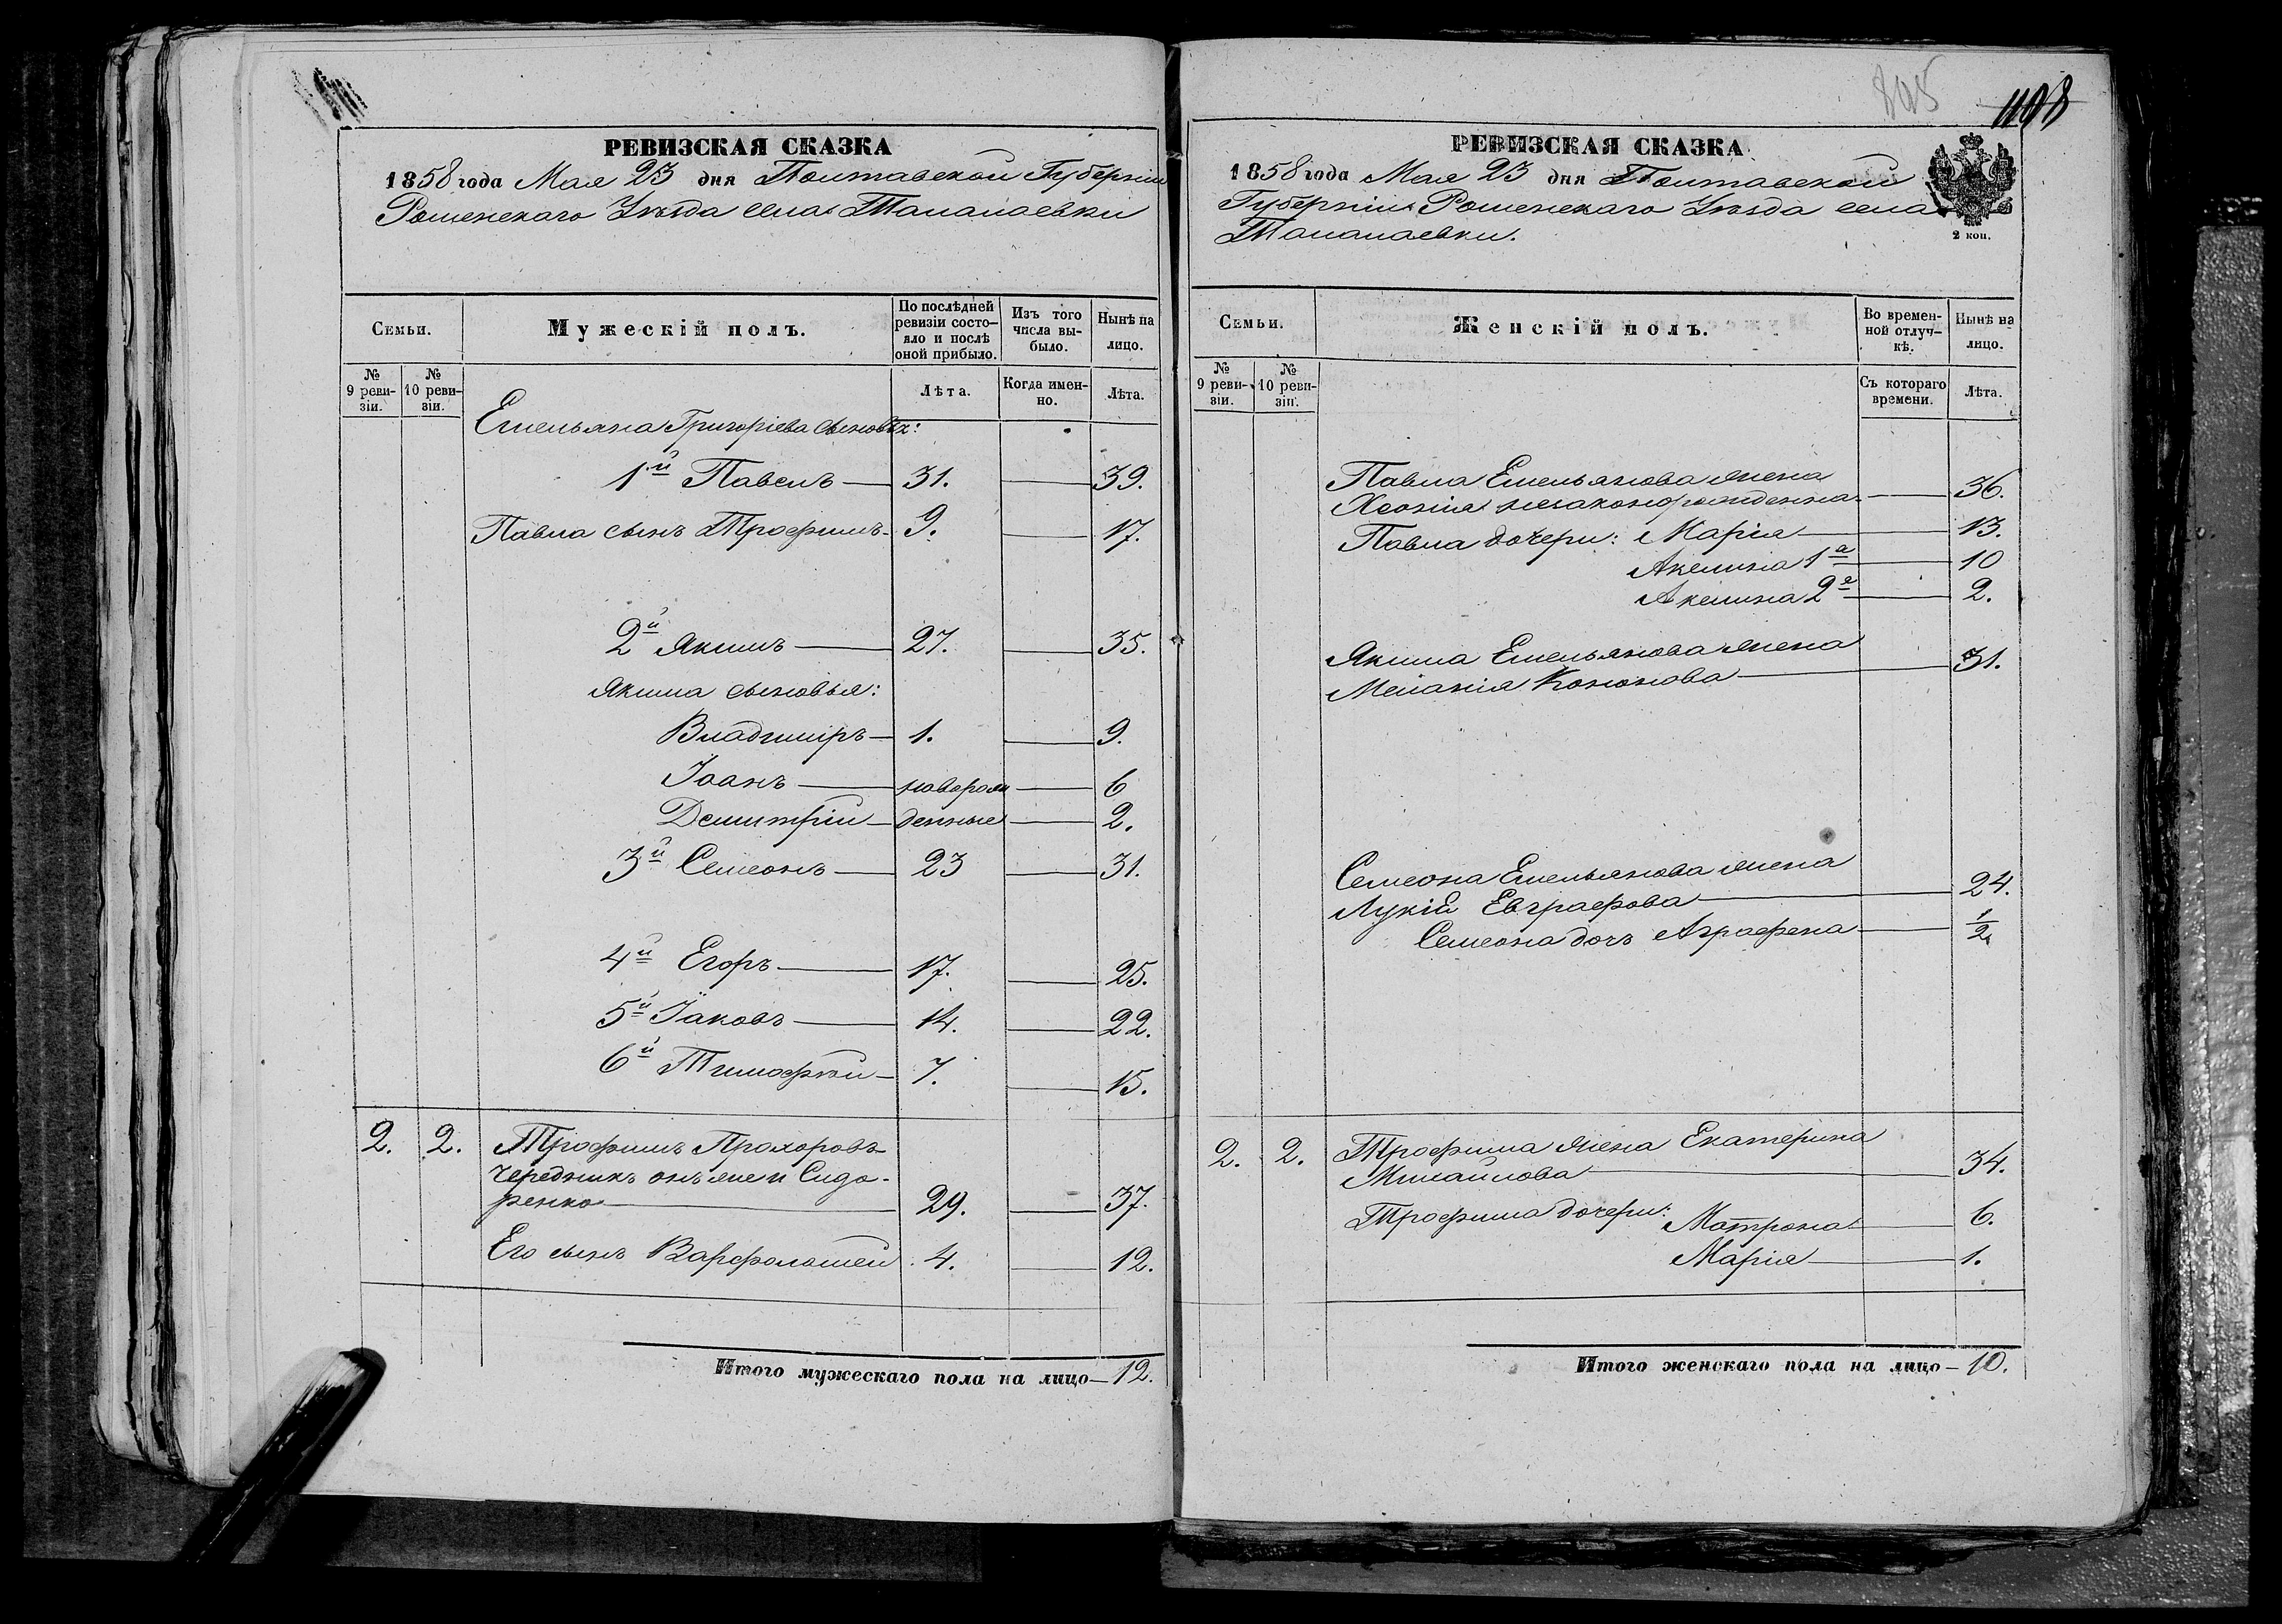 РЕВИЗСКАЯ СКАЗКА
1858 года Мая 23 дня Полтавской Губерніи
Роменскаго Уѣзда села Талалаевки
Семьи.
Мужескій полъ.
По послѣдней ревизіи состо-
яло и послѣ
оной прибыло.
Изъ того
числа вы-
было.
Нынѣ на
лицо.
№
9 реви-
зіи.
№
10 реви-
зіи.
Лѣта.
Когда имен-
но.
Лѣта.
Емельяна Григоріева сыновья:
1й Павелъ — 31. — 39.
Павла сынъ Трофимъ — 9. — 17.
2й Якимъ — 27. — 35.
Якима сыновья:
Владимиръ — 1. — 9.
Іоанъ — новорож — 6
Демитрій — денные — 2.
3й Семеонъ — 23 — 31.
4й Егоръ — 17. — 25.
5й Іаковъ — 14. — 22.
6й Тимофѣй — 7. — 15.
2. 2. Трофимъ Прохоровъ
Чередникъ онъ же и Сидо-
ренко — 29. — 37.
Его сынъ Варфоломей . 4. — 12.
Итого мужескаго пола на лицо — 12.
805
1108
РЕВИЗСКАЯ СКАЗКА
1858 года Мая 23 дня Полтавской
Губерніи Роменскаго Уѣзда села
Талалаевки.
2 коп.
Семьи.
Женскій полъ.
Во времен-
ной отлуч-
кѣ.
Нынѣ на
лицо.
№
9 реви-
зіи.
№
10 реви-
зіи.
Съ котораго
времени.
Лѣта.
Павла Емельянова жена
незаконорожденна — 36.
Павла дочери: Марія — 13.
Акелина 1а — 10
Акелина 2я — 2.
Якима Емельянова жена
Меланія Кононова — 31.
Семеона Емельянова жена
Лукія Евграфова — 24.
Семеона дочь Аграфена — 1/2
2. 2. Трофима жена Екатерина
Михайлова — 34.
Трофима дочери: Матрона — 6.
Марія — 1.
Итого женскаго пола на лицо — 10.